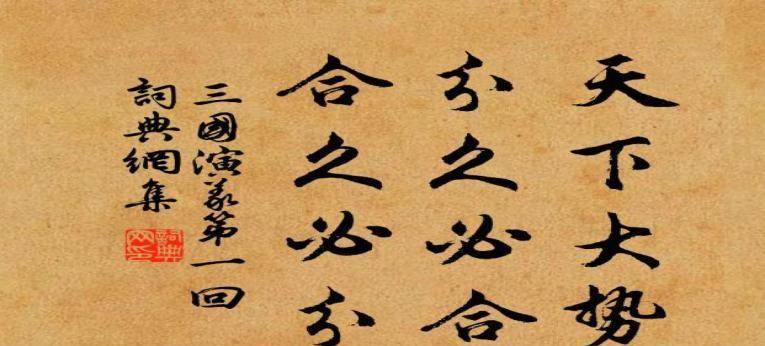 天下大势
分久必合
合久必分
三國演義第一回
詞典網集